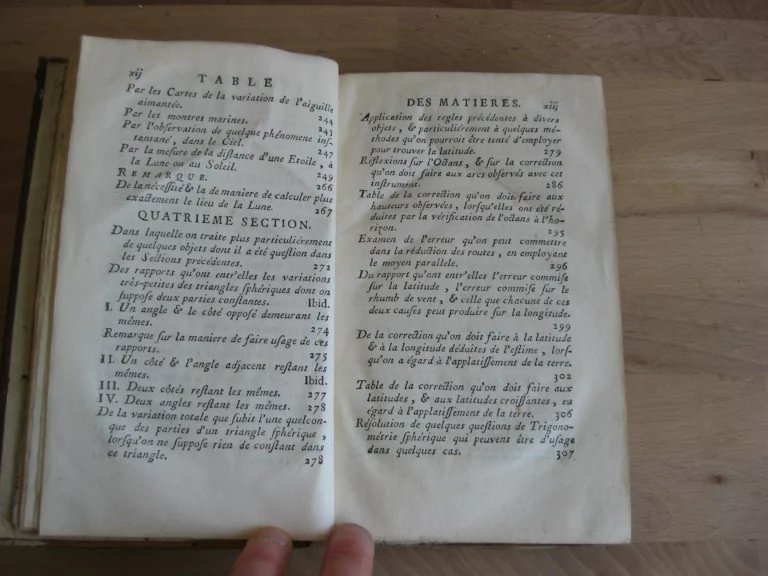 xij
TABLE
Par les Cartes de la variation de l'aiguille
aimantée. 244
Par les montres marines. 245
Par l'observation de quelque phénomene ins-
tantané, dans le Ciel. 247
Par la mesure de la distance d'une Etoile, à
la Lune ou au Soleil. 249
REMARQUE. 266
De la nécessité & de la maniere de calculer plus
exactement le lieu de la Lune. 267
QUATRIEME SECTION.
Dans laquelle on traite plus particuliérement
de quelques objets dont il a été question dans
les Sections précédentes. 272
Des rapports qu'ont entr'elles les variations
très-petites des triangles sphériques dont on
suppose deux parties constantes. Ibid.
I. Un angle & le côté opposé demeurant les
mêmes. 274
Remarque sur la maniere de faire usage de ces
rapports. 275
II. Un côté & l'angle adjacent restant les
mêmes. Ibid.
III. Deux côtés restant les mêmes. 277
IV. Deux angles restant les mêmes. 278
De la variation totale que subit l'une quelcon-
que des parties d'un triangle sphérique,
lorsqu'on ne suppose rien de constant dans
ce triangle. 278
DES MATIERES. xiij
Application des regles précédentes à divers
objets, & particuliérement à quelques mé-
thodes qu'on pourroit être tenté d'employer
pour trouver la latitude. 279
Réflexions sur l'Octans, & sur la correction
qu'on doit faire aux arcs observés avec cet
instrument. 286
Table de la correction qu'on doit faire aux
hauteurs observées, lorsqu'elles ont été ré-
duites par la vérification de l'octans à l'ho-
rizon. 295
Examen de l'erreur qu'on peut commettre
dans la réduction des routes, en employant
le moyen parallele. 296
Du rapport qu'ont entr'elles l'erreur commise
sur la latitude, l'erreur commise sur le
rhumb de vent, & celle que chacune de ces
deux causes peut produire sur la longitude.
299
De la correction qu'on doit faire à la latitude
& à la longitude déduites de l'estime, lors-
qu'on a égard à l'applatissement de la terre.
302
Table de la correction qu'on doit faire aux
latitudes, & aux latitudes croissantes, eu
égard à l'applatissement de la terre. 306
Résolution de quelques questions de Trigono-
métrie sphérique qui peuvent être d'usage
dans quelques cas. 307